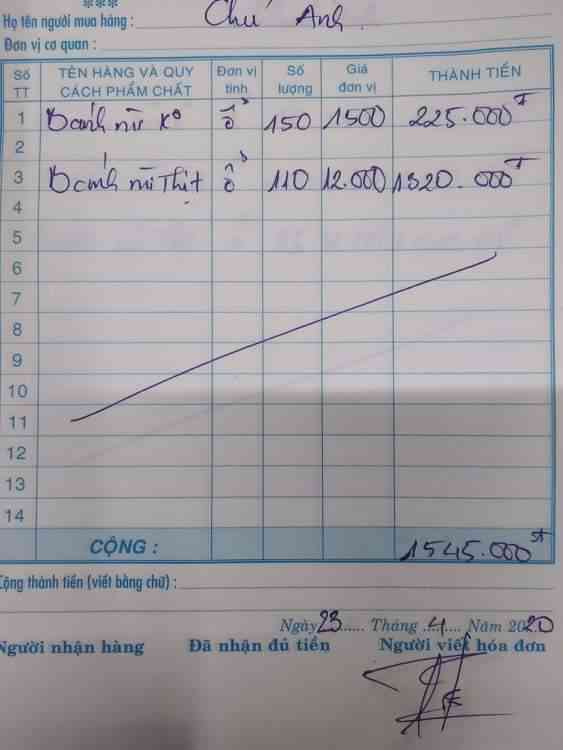 ***
Họ tên người mua hàng : Chú Anh
Đơn vị cơ quan :
Số TT TÊN HÀNG VÀ QUY CÁCH PHẨM CHẤT Đơn vị tính Số lượng Giá đơn vị THÀNH TIỀN
1 Bánh mì Ko ổ 150 1500 225.000đ
2
3 Bánh mì Thịt ổ 110 12.000 1320.000đ
4
5
6
7
8
9
10
11
12
13
14
CỘNG : 1545.000đ
Cộng thành tiền (viết bằng chữ) :
Ngày 23 Tháng 4 Năm 2020
Người nhận hàng Đã nhận đủ tiền Người viết hóa đơn